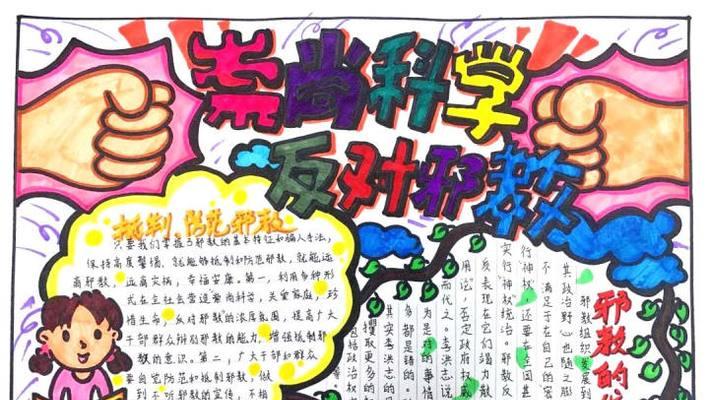 崇尚科学
反对邪教
抵制、防范邪教
只要我们掌握了邪教的基本特征和骗人手法,
保持高度警惕,就能够抵制和防范邪教,就能远
离邪教,远离灾祸,幸福安康。第一,利用多种形
式在全社会营造崇尚科学,关爱家庭,珍
惜生命,反对邪教的浓厚氛围,提高广大
干部群众辩别邪教的能力,增强抵制邪
教的意识。第二,广大干部和群众
要自觉防范和抵制邪教,做
到不听邪教的宣传,不相
邪教的
邪教组织发展到
其政治野心也随之膨
不满足于在自己的
行"神权",还要在全国甚
实行"神权"统治。邪教反
反表现在它们竭力散
用论,否定政府权威
而代之。李洪志说
为是对的事情
多都是错的。
其实李洪志的
攫取更多的
包括政治权